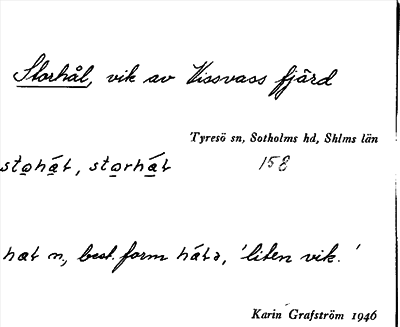 Storhål, vik av Vissvass fjärd
Tyresö sn, Sotholms hd, Shlms län
sto̲há̲ƚ, sto̲rhá̲ƚ 158
haƚ n., best. form háƚə, 'liten vik.'
Karin Grafström 1946